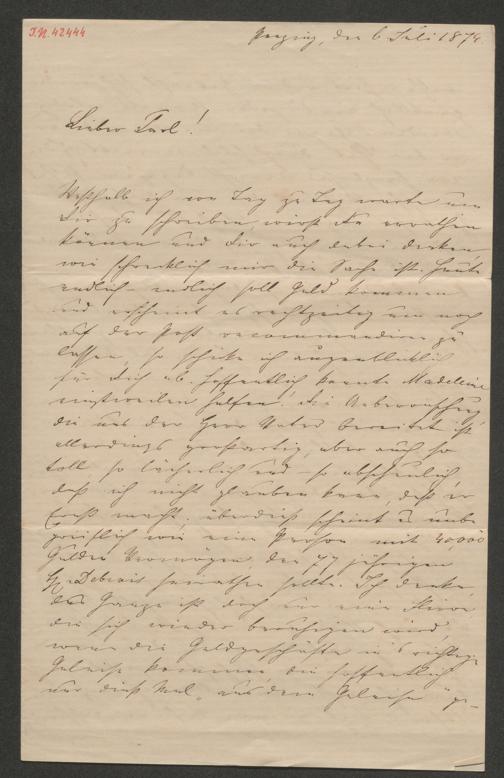 I.N. 42444
Penzing, den 6 Juli 1874.
Lieber Carl!
Weßhalb ich von Tag zu Tag warte um
Dir zu schreiben, wirst Du errathen
können und Dir auch dabei denken
wie schrecklich mir die Sache ist. Heute
endlich – endlich soll Geld kommen
und erscheint es rechtzeitig um noch
auf der Post recommandiren zu
lassen, so schicke ich augenblicklich
für Dich ab. Hoffentlich konnte Madeleine
einstweilen helfen! Die Ueberraschung
die uns der Herr Vater bereitet ist
allerdings großartig, aber auch so
toll so lächerlich und – so abscheulich,
daß ich nicht glauben kann, daß er
Ernst macht; überdieß scheint es unbe-
greiflich wie eine Person mit 40000
Gulden Vermögen den 77 jährigen
H. Debrois heirathen sollte. Ich denke,
das Ganze ist doch nur eine
die sich wieder beruhigen wird,
wenn die Geldgeschäfte in's richtige
Geleise kommen, die hoffentlich
nur dieß Mal „aus dem Geleise" ge-